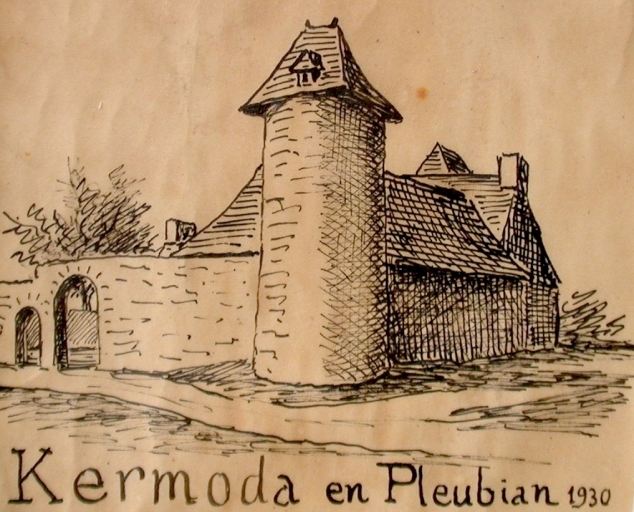 Kermoda en Pleubian 1930